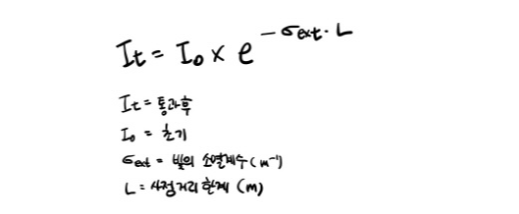 It = I₀ × e^(-σext · L)
It = 통과후
I₀ = 초기
σext = 빛의 소멸계수 (m⁻¹)
L = 사정거리 한계 (m)